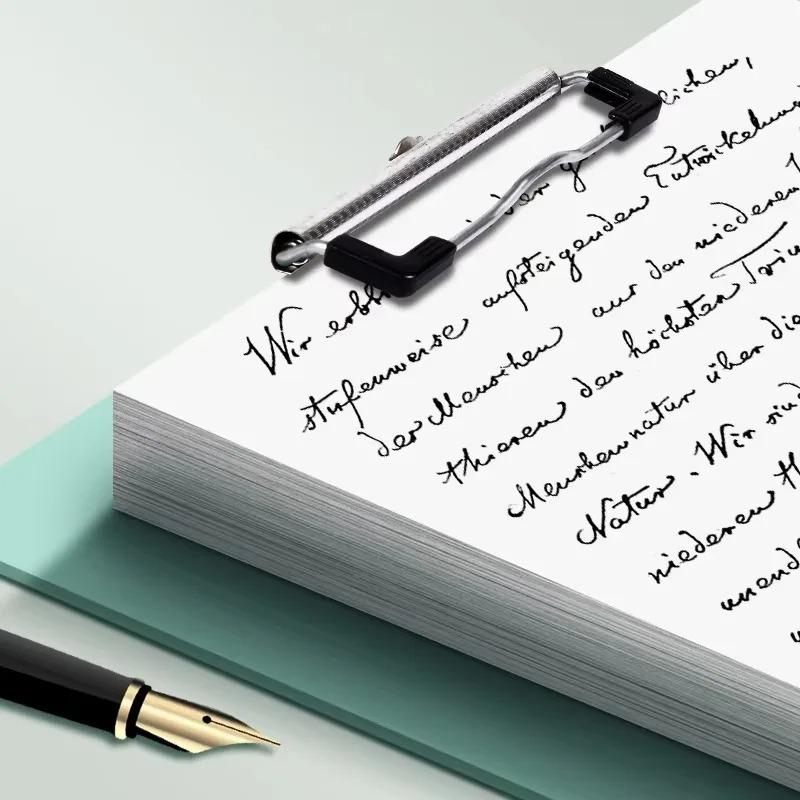 Wir der
stufenweise aufsteigenden Entwickelung
der Menschen aus den niederen
thieren den höchsten Trium
Menschennatur über die
Natur. Wir sind
niederen
unend